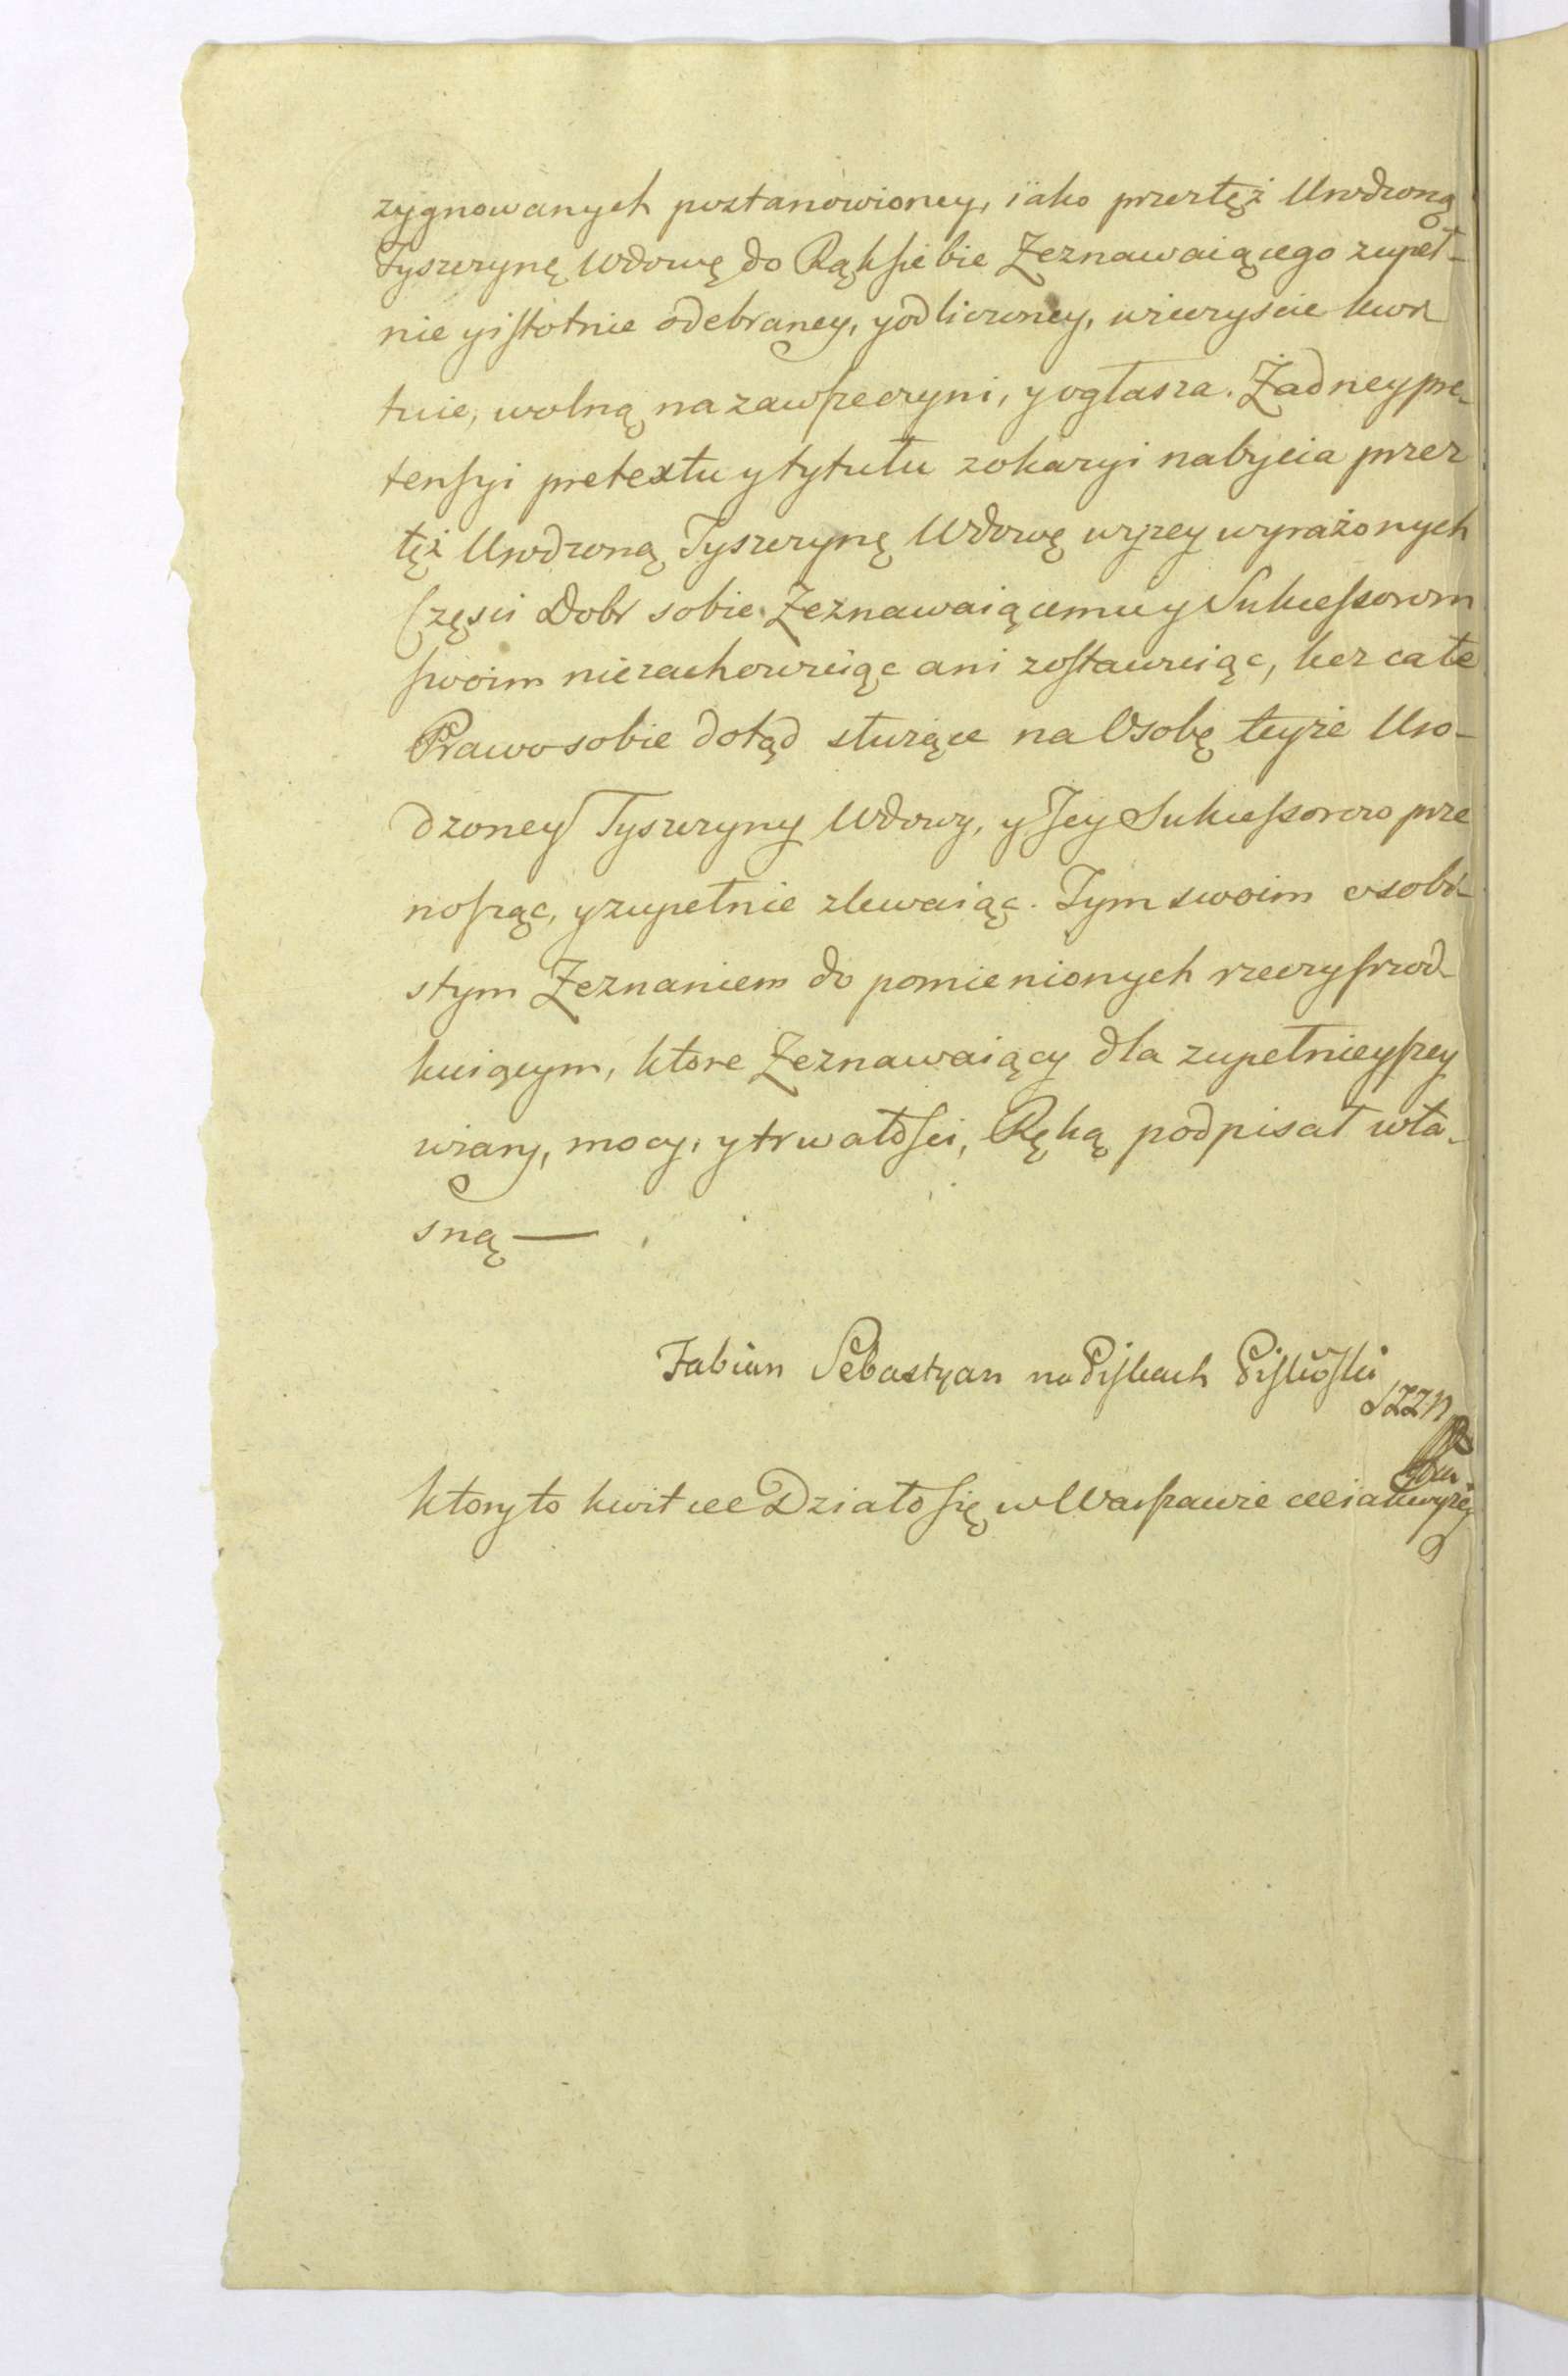 zygnowanych postanowioney, iako przeztęż Urodzoną
Tyszczynę Wdowę do Rąk siebie Zeznawaiącego zupeł-
nie yistotnie odebraney, yodliczoney, wieczyscie kwi-
tuie, wolną nazawszeczyni, yogłasza. Żadney pre-
tensyi pretextu ytytułu zokazyi nabycia przez
tęż Urodzoną Tyszczynę Wdowę wyżey wyrażonych
Częsci Dobr sobie Zeznawaiącemu y Sukcessorom
swoim niezachowuiąc ani zostawuiąc, lecz całe
Prawo sobie dotąd służące na Osobę teyże Uro-
dzoney Tyszczyny Wdowy, y Jey Sukcessorow prze
nosząc, yzupełnie zlewaiąc. Tym swoim osobi-
stym Zeznaniem do pomienionych rzeczy srzod-
kuiącym, ktore Zeznawaiący dla zupełnieyszey
wiary, mocy, ytrwałosci, Ręką podpisał wła-
sną —
Fabian Sebastyan na Piskach Piskoski
SZZN
ktoryto kwit Działo się w Warszawie iakwyżey